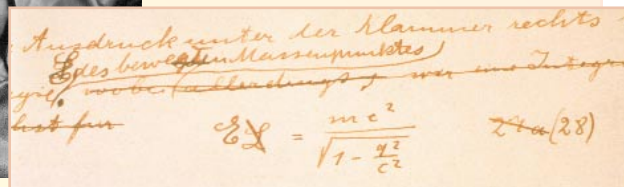 Ausdruck unter der Klammer rechts
E des bewegten Massenpunktes
gie wobei allerdings, nur eine Integr
hst für
EL = mc² / √(1 - q²/c²) 27a (28)